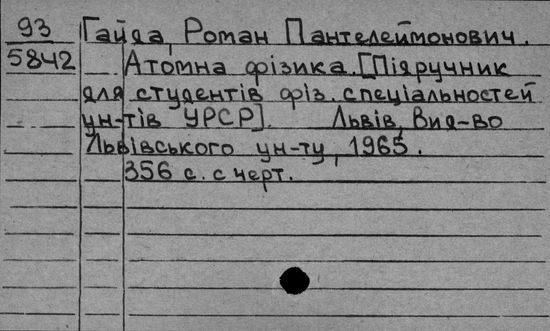 93
5842
Гайда, Роман Пантелеймонович.
Атомна фізика. [Підручник
для студентів фіз. спеціальностей
ун-тів УРСР]. Львів, Вид-во
Львівського ун-ту, 1965.
356 с. с черт.